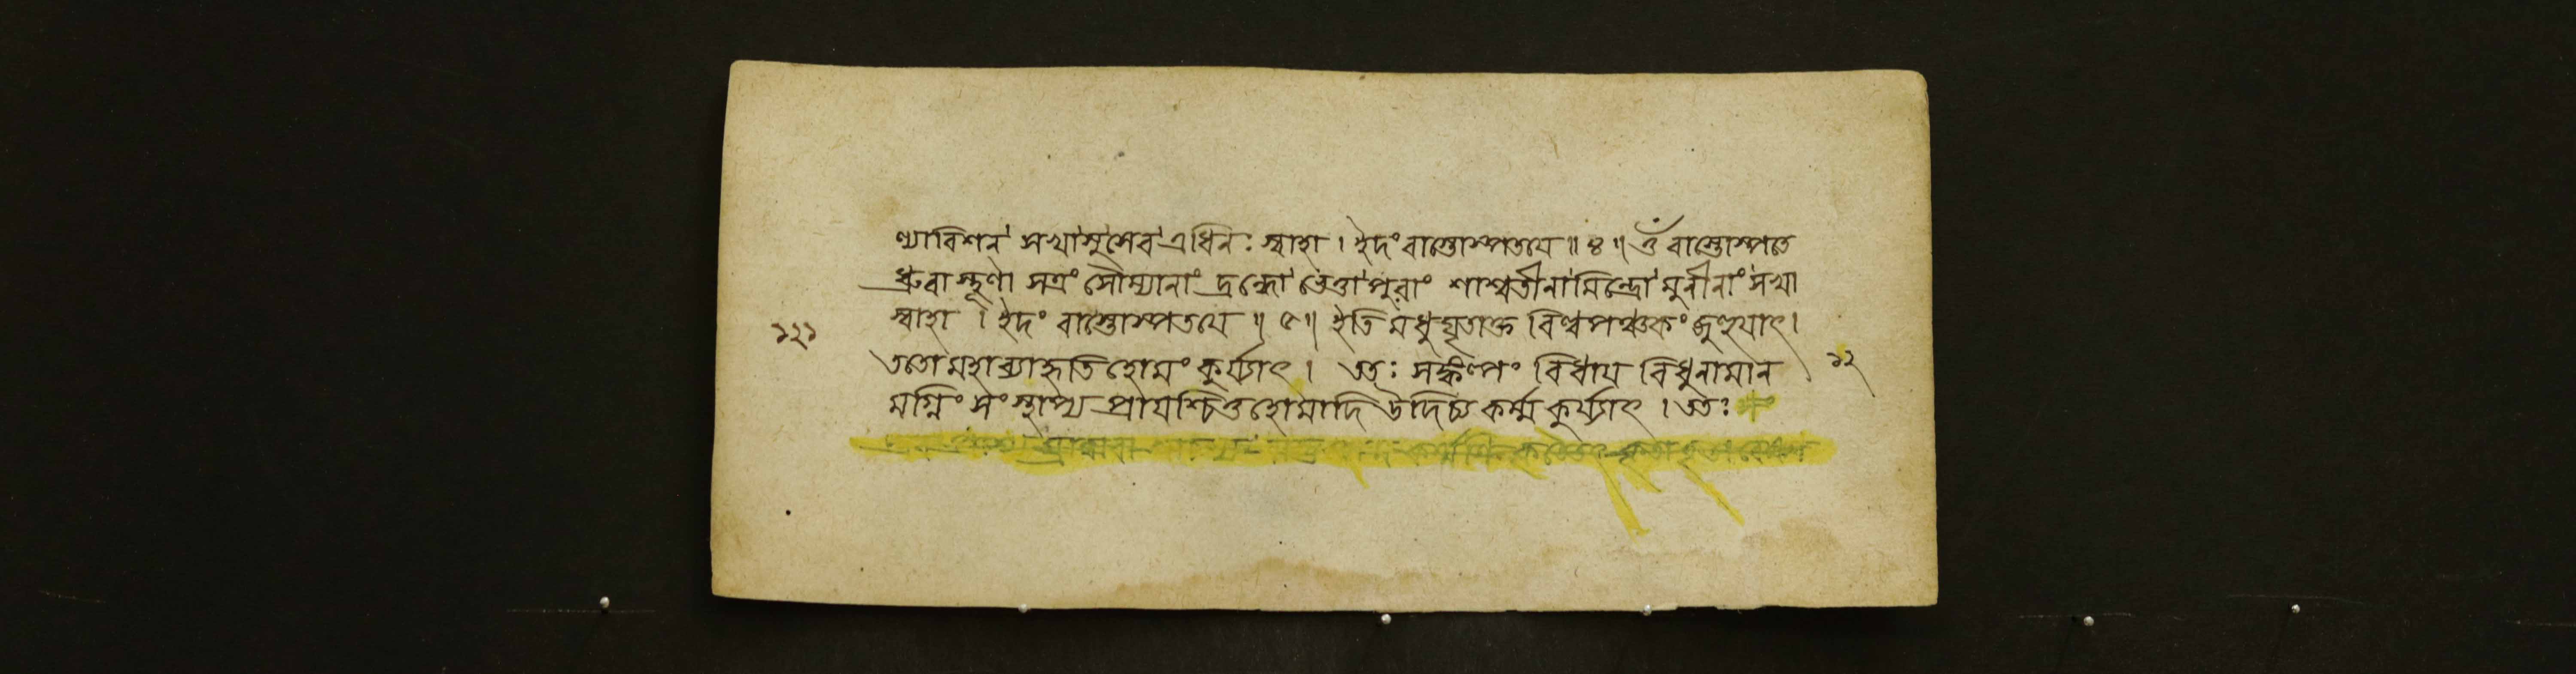 ণ্যাবিশন্ সখা সুশেব এধিনঃ স্বাহা । ইদং বাস্তোস্পতয়ে ॥ ৪ ॥ ওঁ বাস্তোস্পতে
ধ্রুবা স্থূণা সত্রং সৌম্যানাং দ্রপ্সো ভেত্তা পুরাং শাশ্বতীনামিন্দ্রো মুনীনাং সখা
স্বাহা । ইদং বাস্তোস্পতয়ে ॥ ৫ ॥ ইতি মধুঘৃতাক্ত বিল্বপঞ্চকং জুহুয়াৎ ।
১২১
ততো মহাব্যাহৃতি হোমং কুর্য্যাৎ । ততঃ সঙ্কল্পং বিধায় বিধুনামান
১২
মগ্নিং সংস্থাপ্য প্রায়শ্চিত্তহোমাদি উদিচ্য কর্ম্ম কুর্য্যাৎ । ততঃ